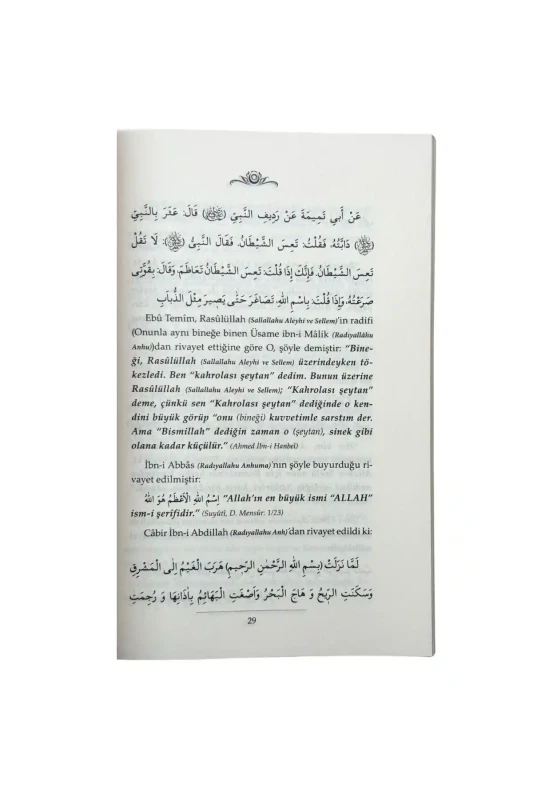 عَنْ أَبِي تَمِيمَةَ عَنْ رَدِيفِ النَّبِيِّ (ﷺ) قَالَ: عَثَرَ بِالنَّبِيِّ
(ﷺ) دَابَّتُهُ، فَقُلْتُ: تَعِسَ الشَّيْطَانُ. فَقَالَ النَّبِيُّ (ﷺ): لَا تَقُلْ
تَعِسَ الشَّيْطَانُ. فَإِنَّكَ إِذَا قُلْتَ: تَعِسَ الشَّيْطَانُ تَعَاظَمَ، وَقَالَ: بِقُوَّتِي
صَرَعْتُهُ، وَإِذَا قُلْتَ: بِاسْمِ اللهِ، تَصَاغَرَ حَتَّى يَصِيرَ مِثْلَ الذُّبَابِ
Ebû Temîm, Rasûlüllah (Sallallahu Aleyhi ve Sellem)'in radifi
(Onunla aynı bineğe binen Üsame ibn-i Mâlik (Radıyallâhu
Anhu)dan rivayet ettiğine göre O, şöyle demiştir: “Bine-
ği, Rasûlüllah (Sallallahu Aleyhi ve Sellem) üzerindeyken tö-
kezledi. Ben “kahrolası şeytan” dedim. Bunun üzerine
Rasûlüllah (Sallallahu Aleyhi ve Sellem); “Kahrolası şeytan”
deme, çünkü sen “Kahrolası şeytan” dediğinde o ken-
dini büyük görüp “onu (bineği) kuvvetimle sarstım der.
Ama “Bismillah” dediğin zaman o (şeytan), sinek gibi
olana kadar küçülür.” (Ahmed İbn-i Hanbel)
İbn-i Abbâs (Radıyallahu Anhuma)'nın şöyle buyurduğu ri-
vayet edilmiştir:
اِسْمُ اللهِ الْاَعْظَمُ هُوَ اللهُ “Allah'ın en büyük ismi “ALLAH”
ism-i şerifidir.” (Suyûtî, D. Mensûr: 1/23)
Câbir İbn-i Abdillah (Radıyallahu Anh)'dan rivayet edildi ki:
لَمَّا نَزَلَتْ (بِسْمِ اللهِ الرَّحْمٰنِ الرَّحِيمِ) هَرَبَ الْغَيْمُ اِلَى الْمَشْرِقِ
وَسَكَنَتِ الرِّيحُ وَ هَاجَ الْبَحْرُ وَاَصْغَتِ الْبَهَائِمُ بِاٰذَانِهَا وَ رُجِمَتِ
29